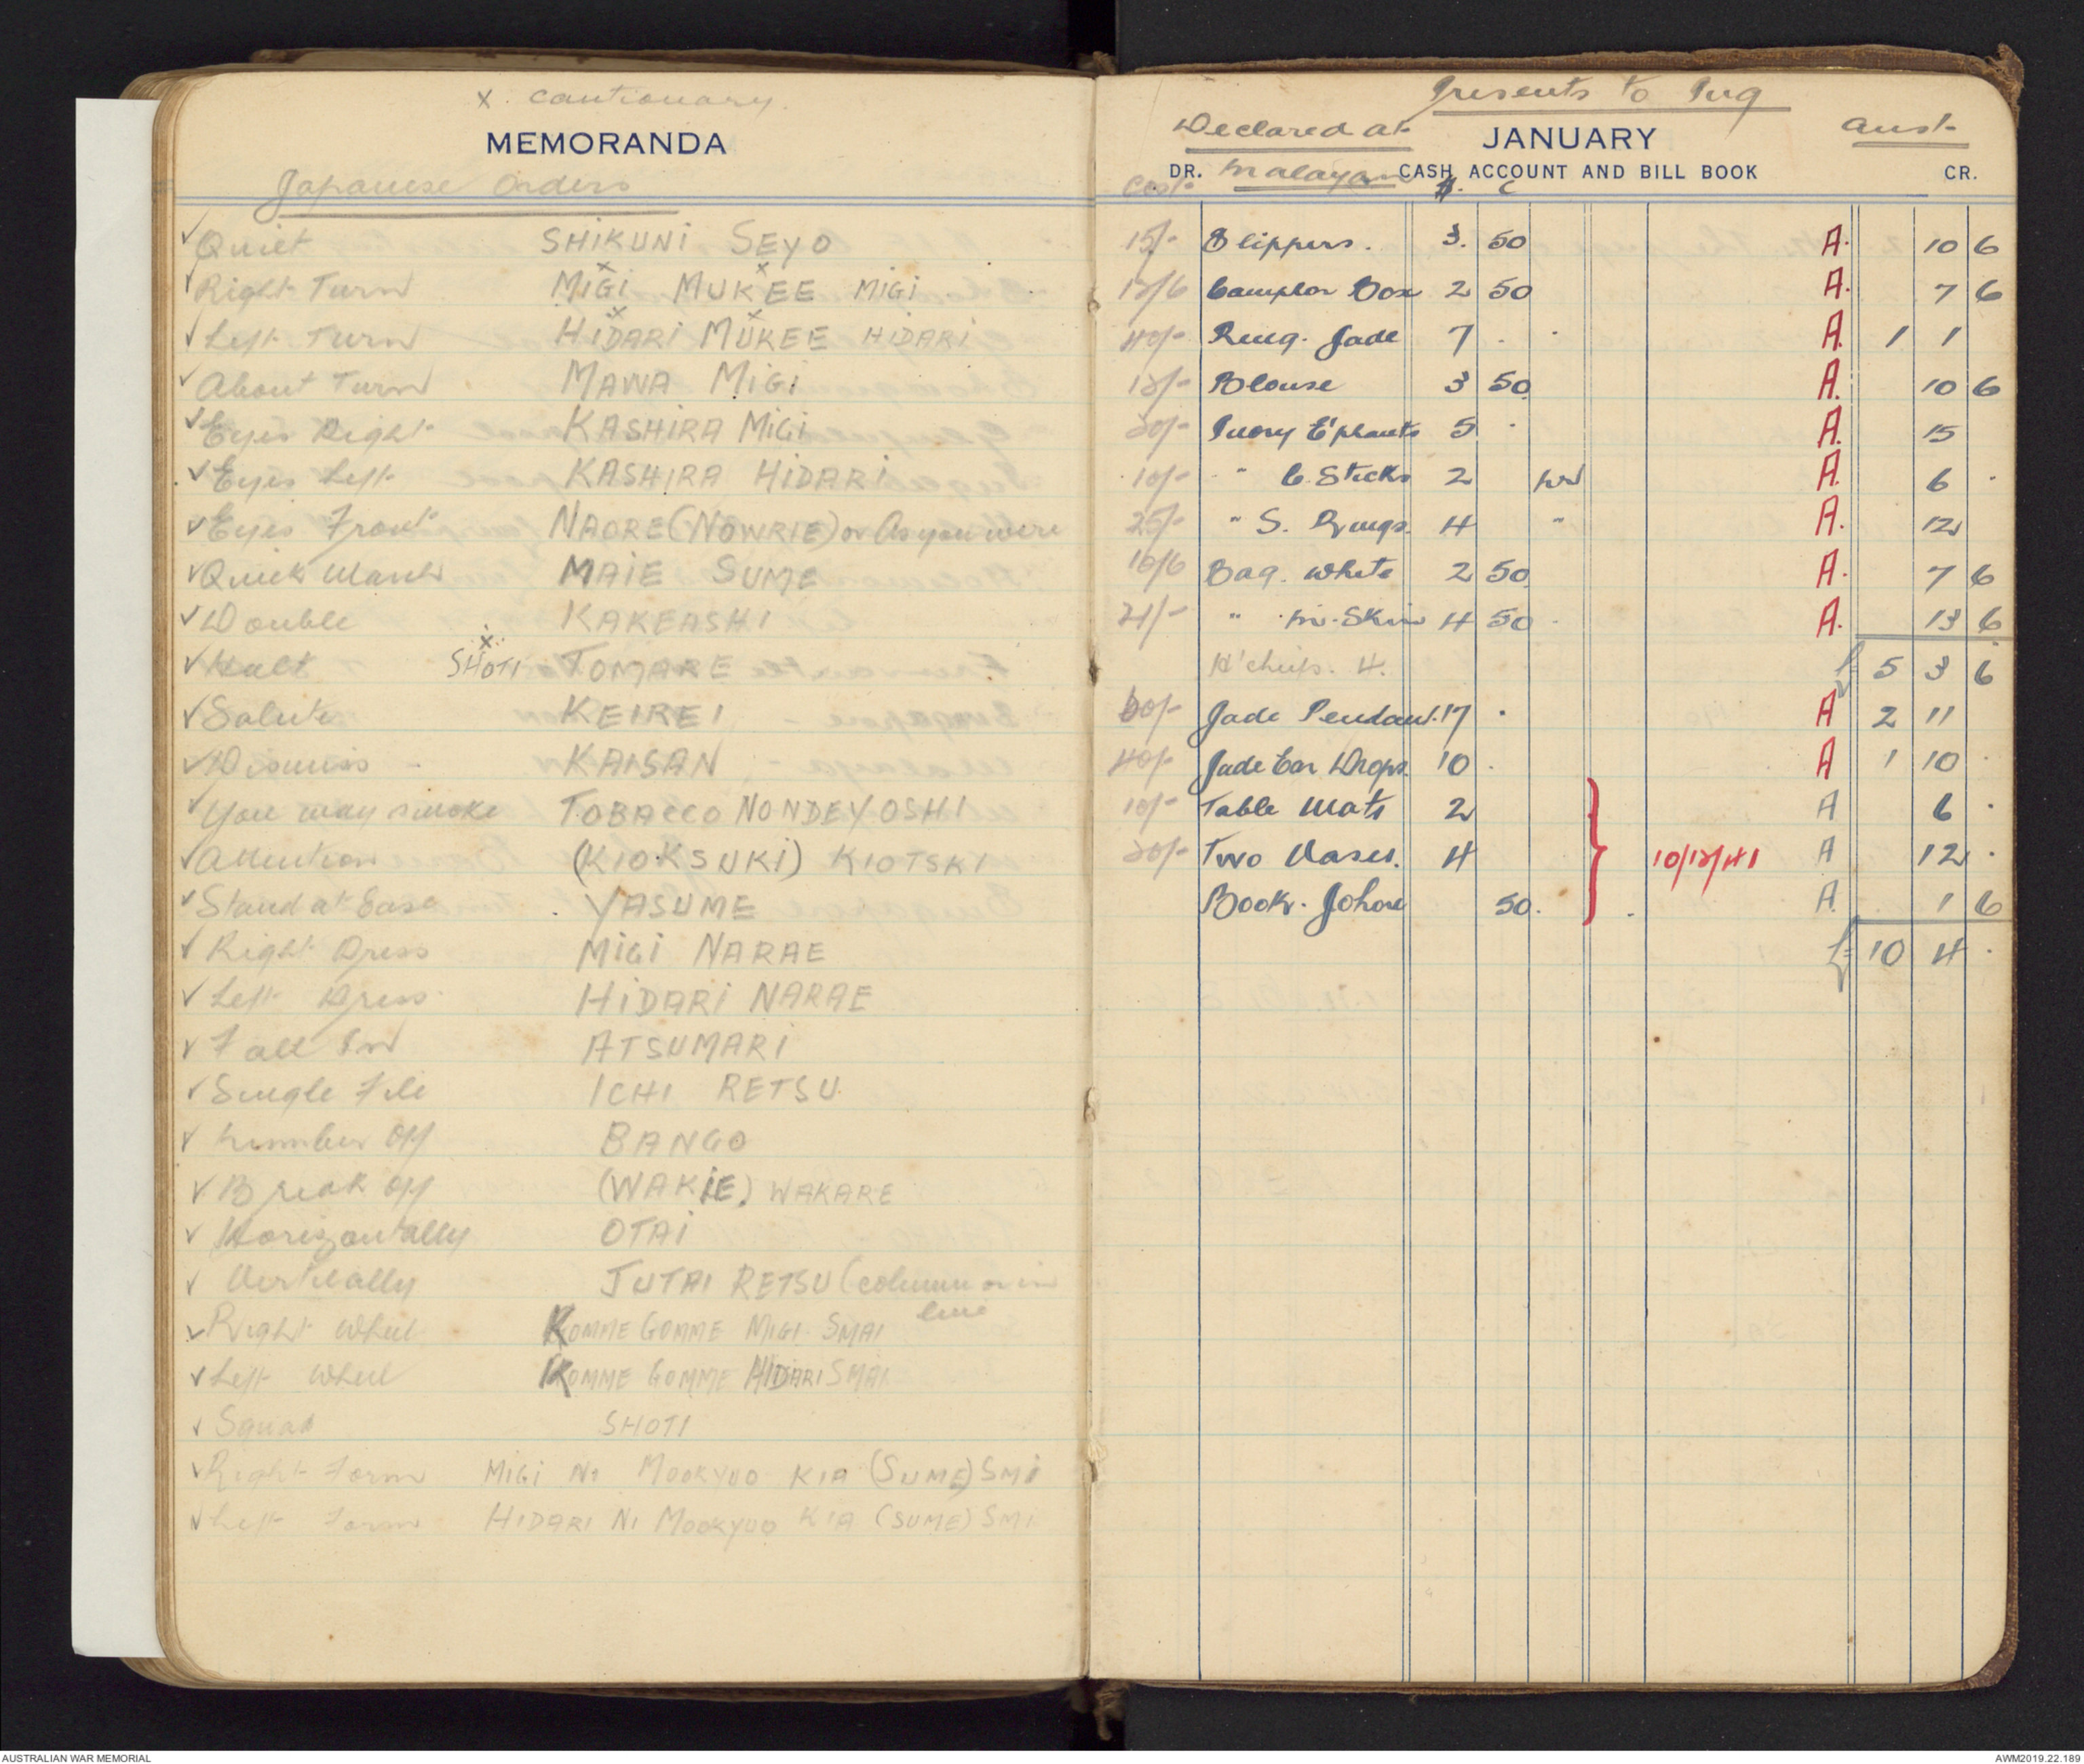 x. cautionary.
MEMORANDA
Japanese Orders
✓ Quiet SHIKUNI SEYO
✓ Right Turn MIGI MUKEE MIGI
✓ Left Turn HIDARI MUKEE HIDARI
✓ About Turn MAWA MIGI
✓ Eyes Right KASHIRA MIGI
✓ Eyes Left KASHIRA HIDARI
✓ Eyes Front NAORE (NOWRIE) or As you were
✓ Quick March MAIE SUME
✓ Double KAKEASHI
✓ Halt SHOTI TOMARE
✓ Salute KEIREI
✓ Dismiss - KAISAN
✓ You may smoke TOBACCO NONDEYOSHI
✓ Attention (KIOKSUKI) KIOTSKI
✓ Stand at Ease YASUME
✓ Right Dress MIGI NARAE
✓ Left Dress HIDARI NARAE
✓ Fall In ATSUMARI
✓ Single File ICHI RETSU
✓ Number Off BANGO
✓ Break Off (WAKIE) WAKARE
✓ Horizontally OTAI
✓ Vertically JUTAI RETSU (column or in
line
✓ Right Wheel KOMME GOMME MIGI SMAI
✓ Left Wheel KOMME GOMME HIDARI SMAI
✓ Squad SHOTI
✓ Right Form MIGI NI MOOKYUO KIA (SUME) SMI
✓ Left Form HIDARI NI MOOKYUO KIA (SUME) SMI
Presents to Pug
Declared at JANUARY Aust.
DR. Malayan CASH ACCOUNT AND BILL BOOK CR.
Cost. $. C
15/- Slippers. 3. 50 A. 10 6
12/6 Camphor Box 2 50 A. 7 6
40/- Ring. Jade 7 . A. 1 1
12/- Blouse 3 50 A. 10 6
20/- Ivory E'phants 5 . A. 15
10/- " C. Sticks 2 A. 6 .
25/- " S. Rings. 4 " A. 12
10/6 Bag. White 2 50 A. 7 6
21/- " Skin 4 50 A. 13 6
H'chiefs. 4. £ 5 3 6
60/- Jade Pendant. 17 . A 2 11
40/- Jade Ear Drops. 10 . A 1 10
10/- Table Mats 2 A 6 .
20/- Two Vases. 4 10/12/41 A 12 .
Book. Johore 50. A. 1 6
£ 10 4 .
AUSTRALIAN WAR MEMORIAL AWM2019.22.189